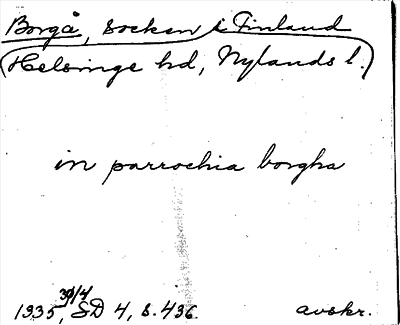 Borgå, socken i Finland
(Helsinge hd, Nylands l.)
in parrochia borgha
1335, 30/4 SD 4, s. 436. avskr.